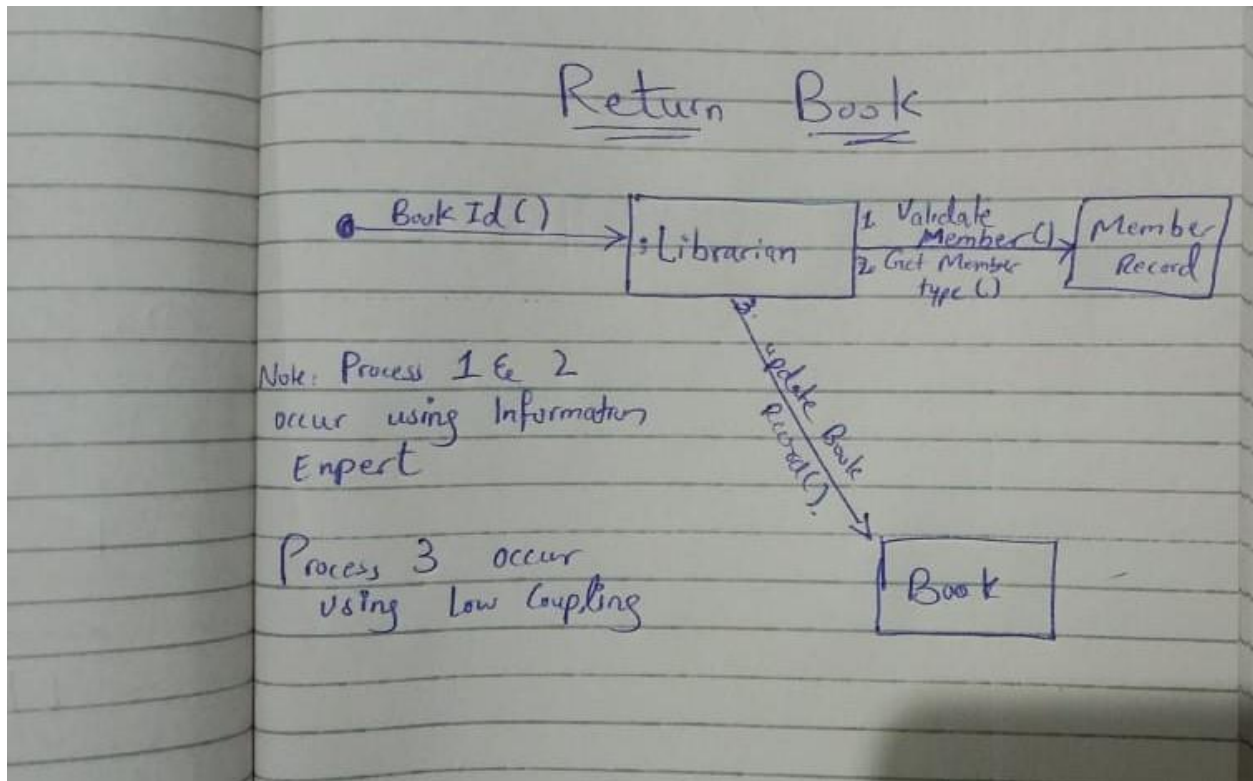 Return Book
Book Id ()
:Librarian
1. Validate
Member ()
2. Get Member
type ()
Member
Record
3. update Book
record().
Book
Note: Process 1 & 2
occur using Information
Enpert
Process 3 occur
using Low Coupling